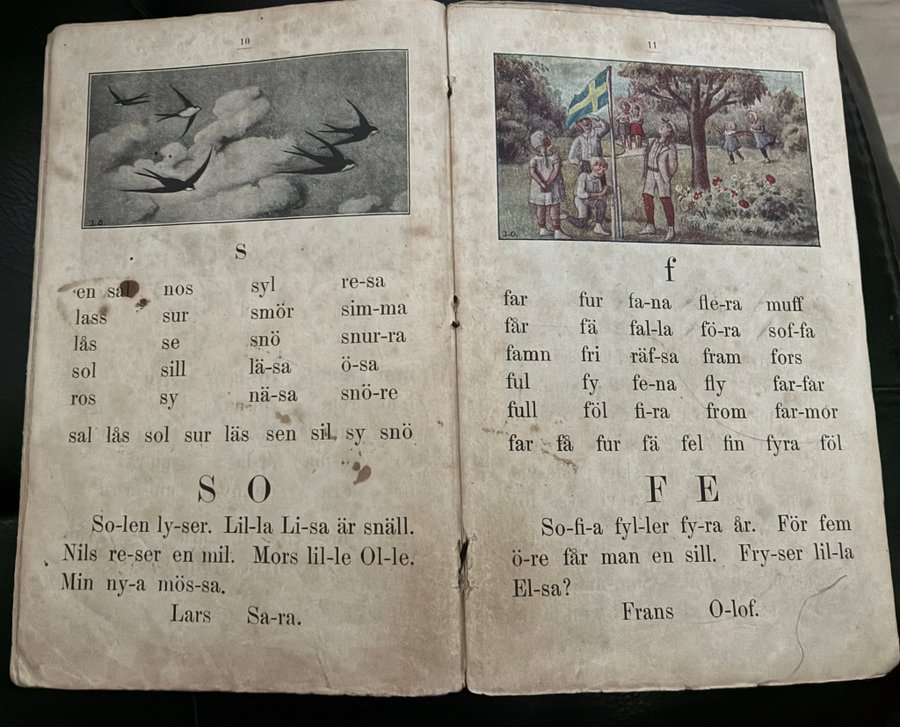 10
J.O.
s
en sal nos syl re-sa
lass sur smör sim-ma
lås se snö snur-ra
sol sill lä-sa ö-sa
ros sy nä-sa snö-re
sal lås sol sur läs sen sil sy snö
S O
So-len ly-ser. Lil-la Li-sa är snäll.
Nils re-ser en mil. Mors lil-le Ol-le.
Min ny-a mös-sa.
Lars Sa-ra.
11
J.O.
f
far fur fa-na fle-ra muff
får fä fal-la fö-ra sof-fa
famn fri räf-sa fram fors
ful fy fe-na fly far-far
full föl fi-ra from far-mor
far få fur fä fel fin fyra föl
F E
So-fi-a fyl-ler fy-ra år. För fem
ö-re får man en sill. Fry-ser lil-la
El-sa?
Frans O-lof.